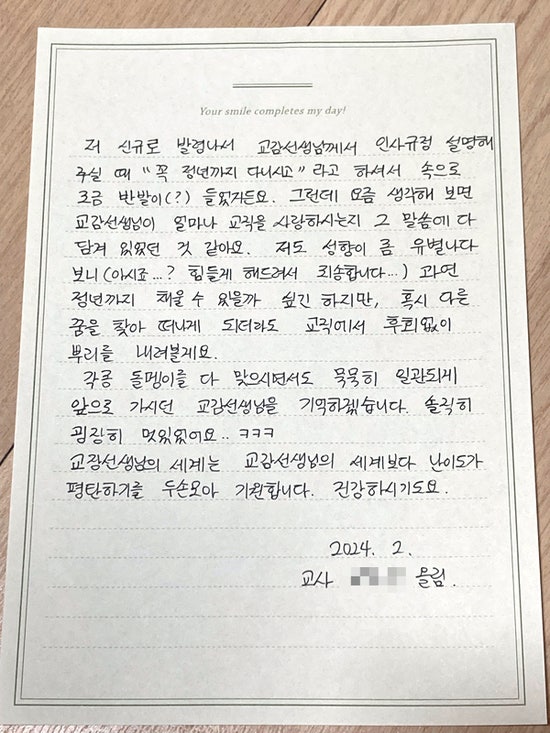 Your smile completes my day!
저 신규로 발령나서 교감선생님께서 인사규정 설명해
주실 때 "꼭 정년까지 다니시고"라고 하셔서 속으로
조금 반발이(?) 들었거든요. 그런데 요즘 생각해 보면
교감선생님이 얼마나 교직을 사랑하시는지 그 말씀에 다
담겨 있었던 것 같아요. 저도 성향이 좀 유별나다
보니(아시죠...? 힘들게 해드려서 죄송합니다...) 과연
정년까지 채울 수 있을까 싶긴 하지만, 혹시 다른
꿈을 찾아 떠나게 되더라도 교직에서 후회없이
뿌리를 내려볼게요.
각종 돌멩이를 다 맞으시면서도 묵묵히 일관되게
앞으로 가시던 교감선생님을 기억하겠습니다. 솔직히
굉장히 멋있었어요.. ㅋㅋㅋ
교장선생님의 세계는 교감선생님의 세계보다 난이도가
평탄하기를 두손모아 기원합니다. 건강하시기도요.
2024. 2.
교사 올림.